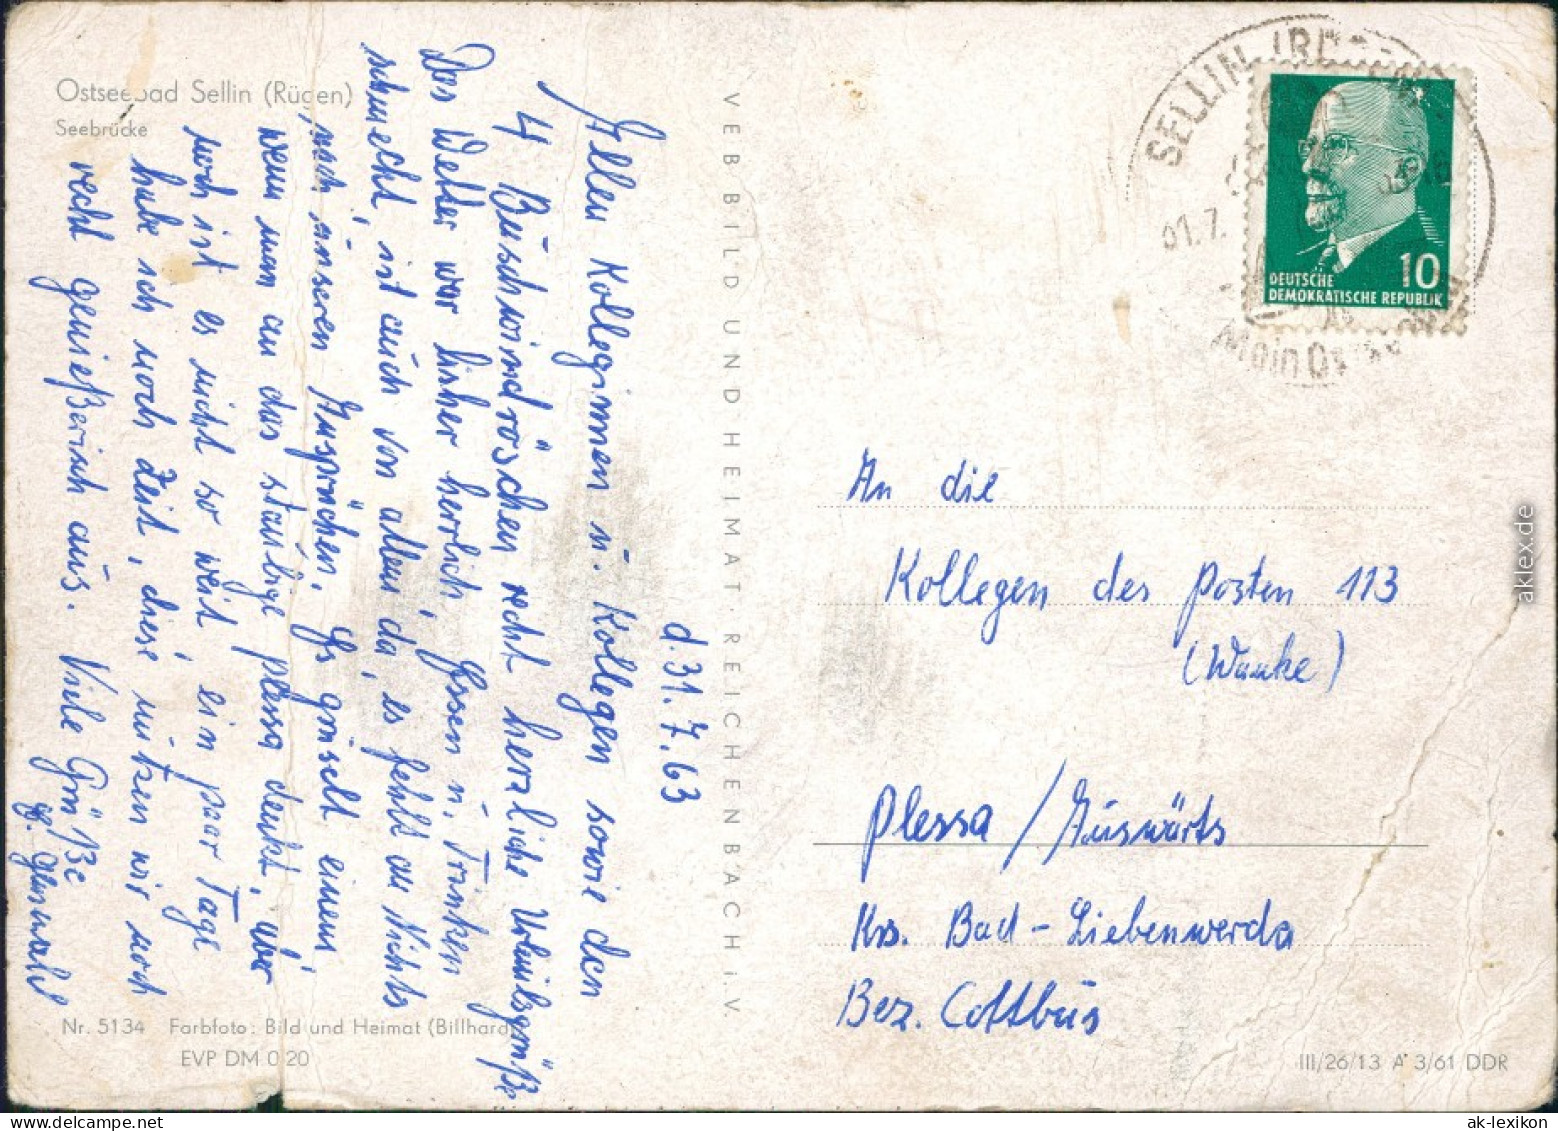 Ostseebad Sellin (Rügen)
Seebrücke
d. 31.7.63
Allen Kolleginnen u. Kollegen sowie den
4 Buschwindröschen recht herzliche Urlaubsgrüße
Das Wetter war bisher herrlich, Essen u. Trinken
schmeckt, ist auch von allem da, es fehlt an Nichts
"nach unseren Ansprüchen. Es gruselt einem,
wenn man an das staubige Plessa denkt, aber
noch ist es nicht so weit ein paar Tage
habe ich noch Zeit, diese nutzen wir noch
recht genießerisch aus. Viele Grüße
Nr. 5134 Farbfoto: Bild und Heimat (Billhardt)
EVP DM 0 20
VEB BILD UND HEIMAT REICHENBACH i. V.
SELLIN (RÜGEN)
DEUTSCHE
DEMOKRATISCHE REPUBLIK
10
An die
Kollegen des Posten 113
(Wanke)
Plessa / Auswärts
Krs. Bad-Liebenwerda
Bez. Cottbus
III/26/13 A 3/61 DDR
aklex.de
ak-lexikon